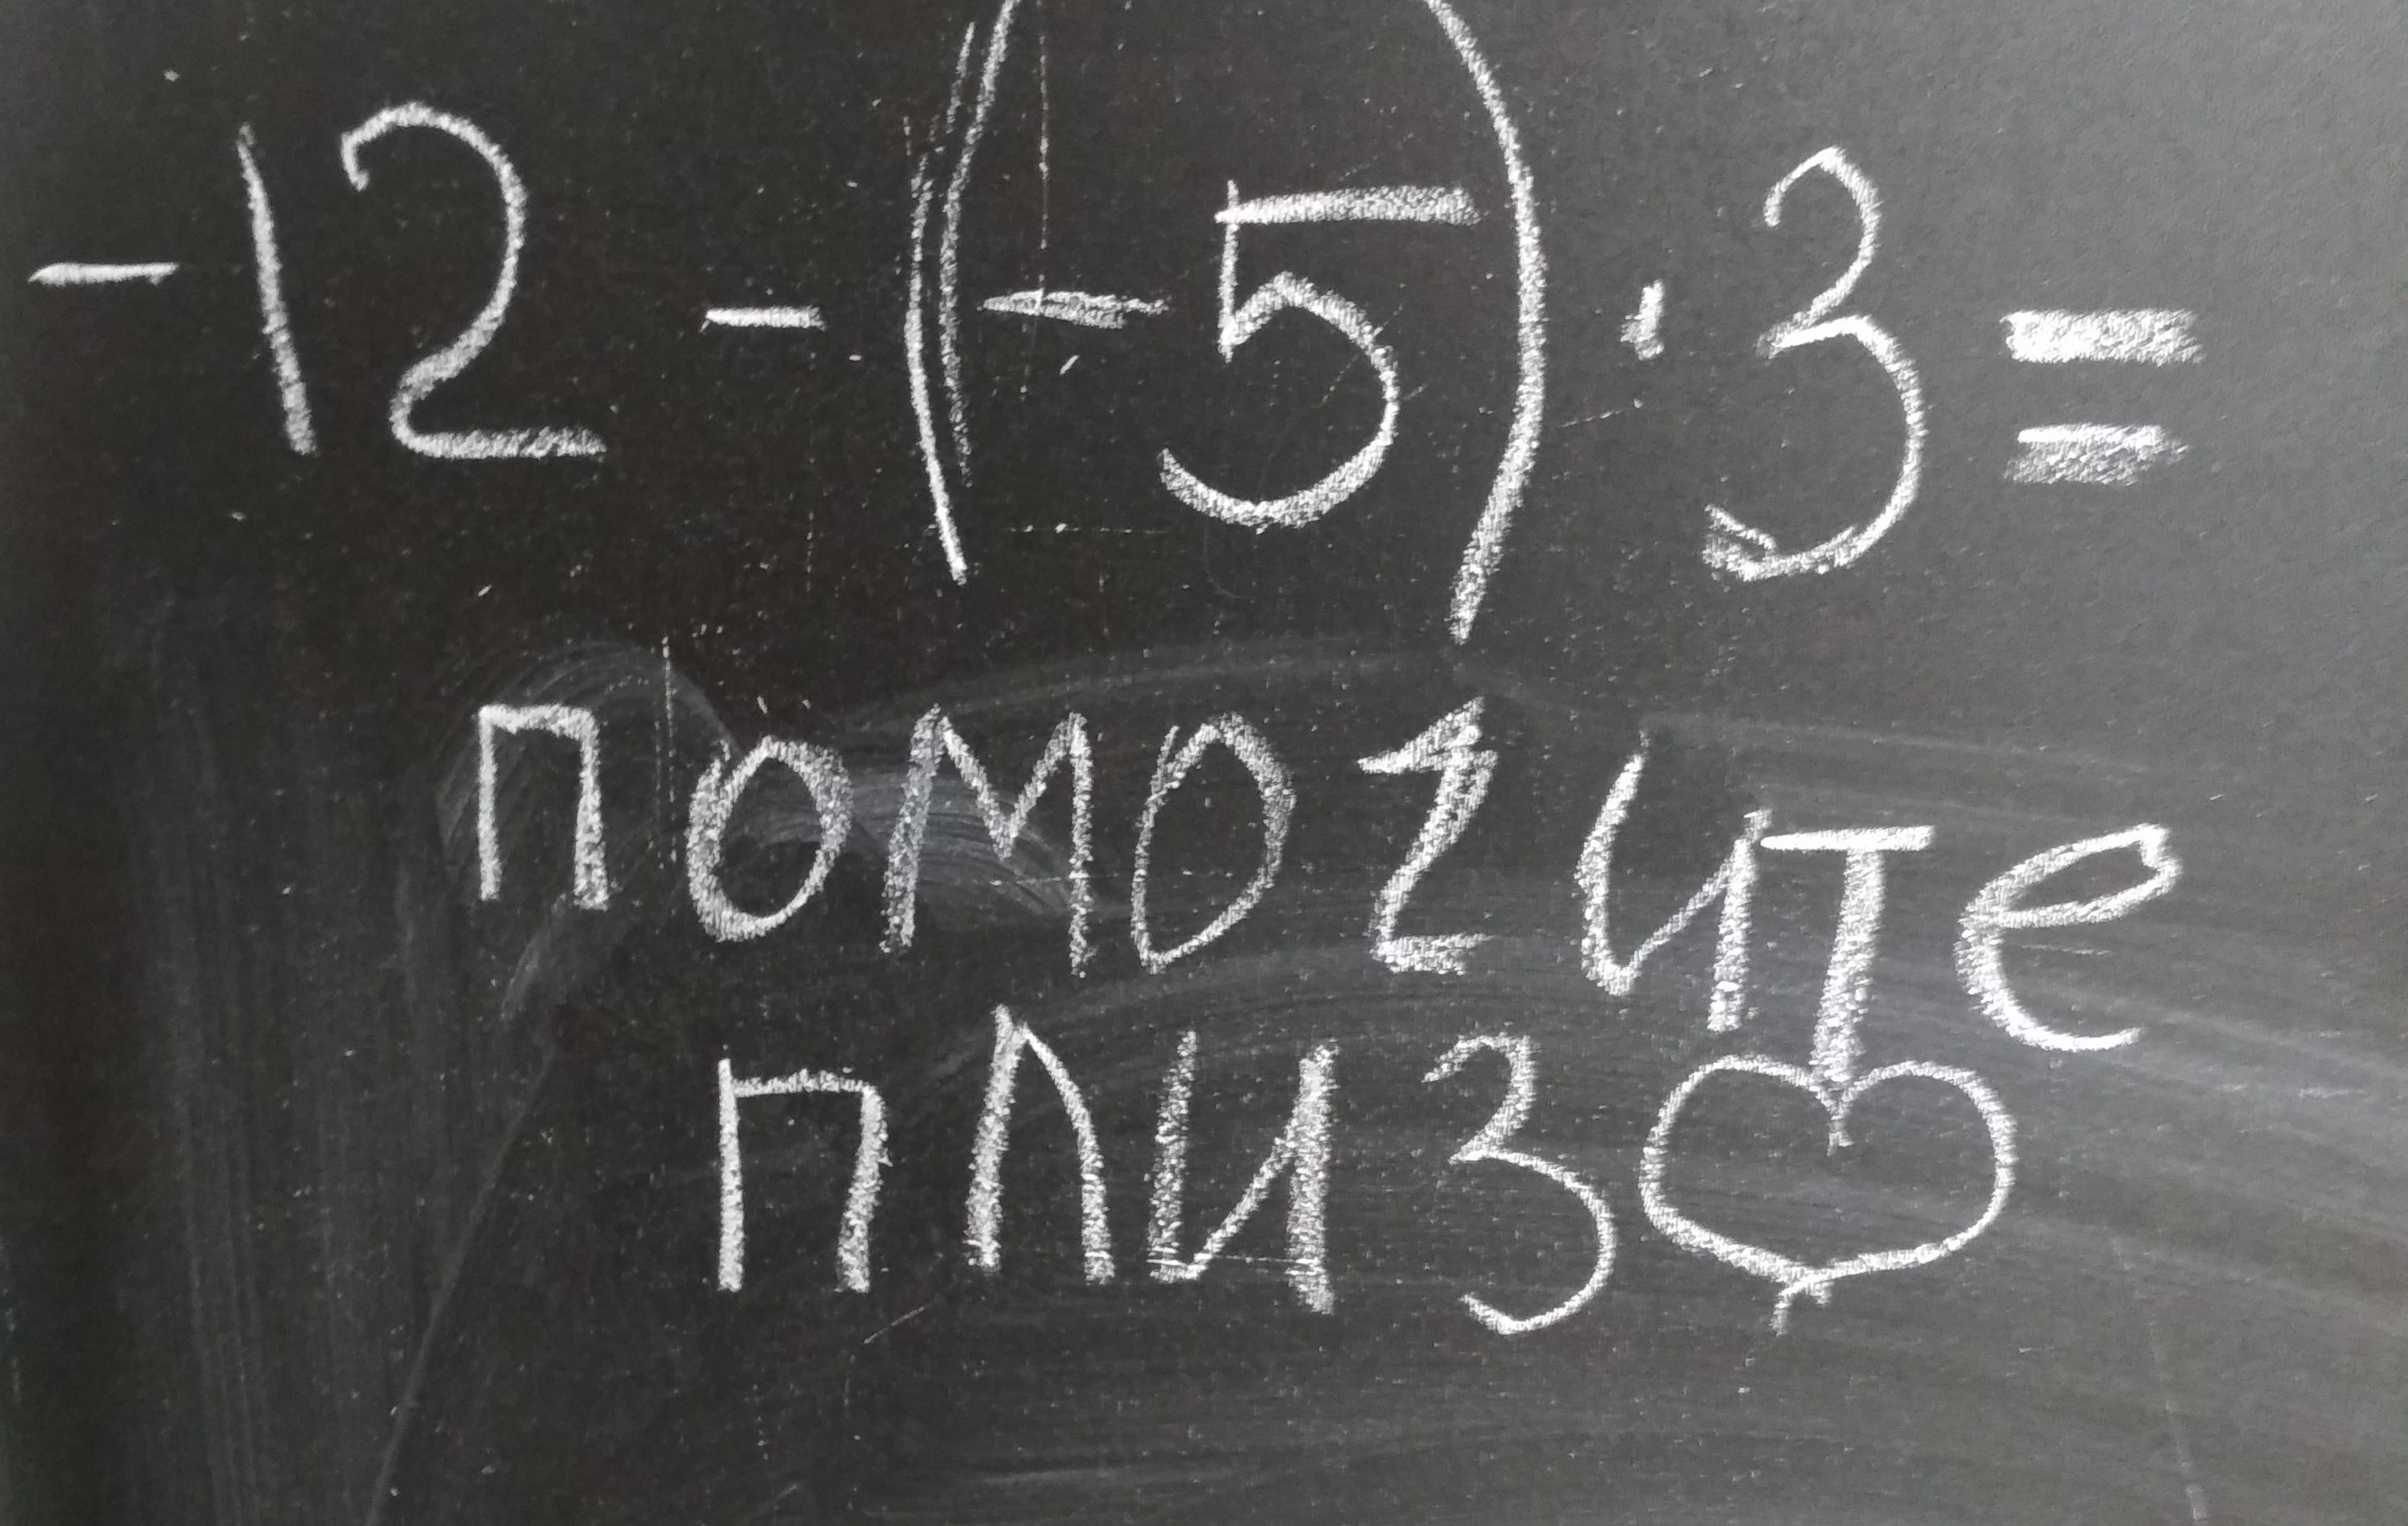 -12 - (-5) · 3 =
помогите
плиз